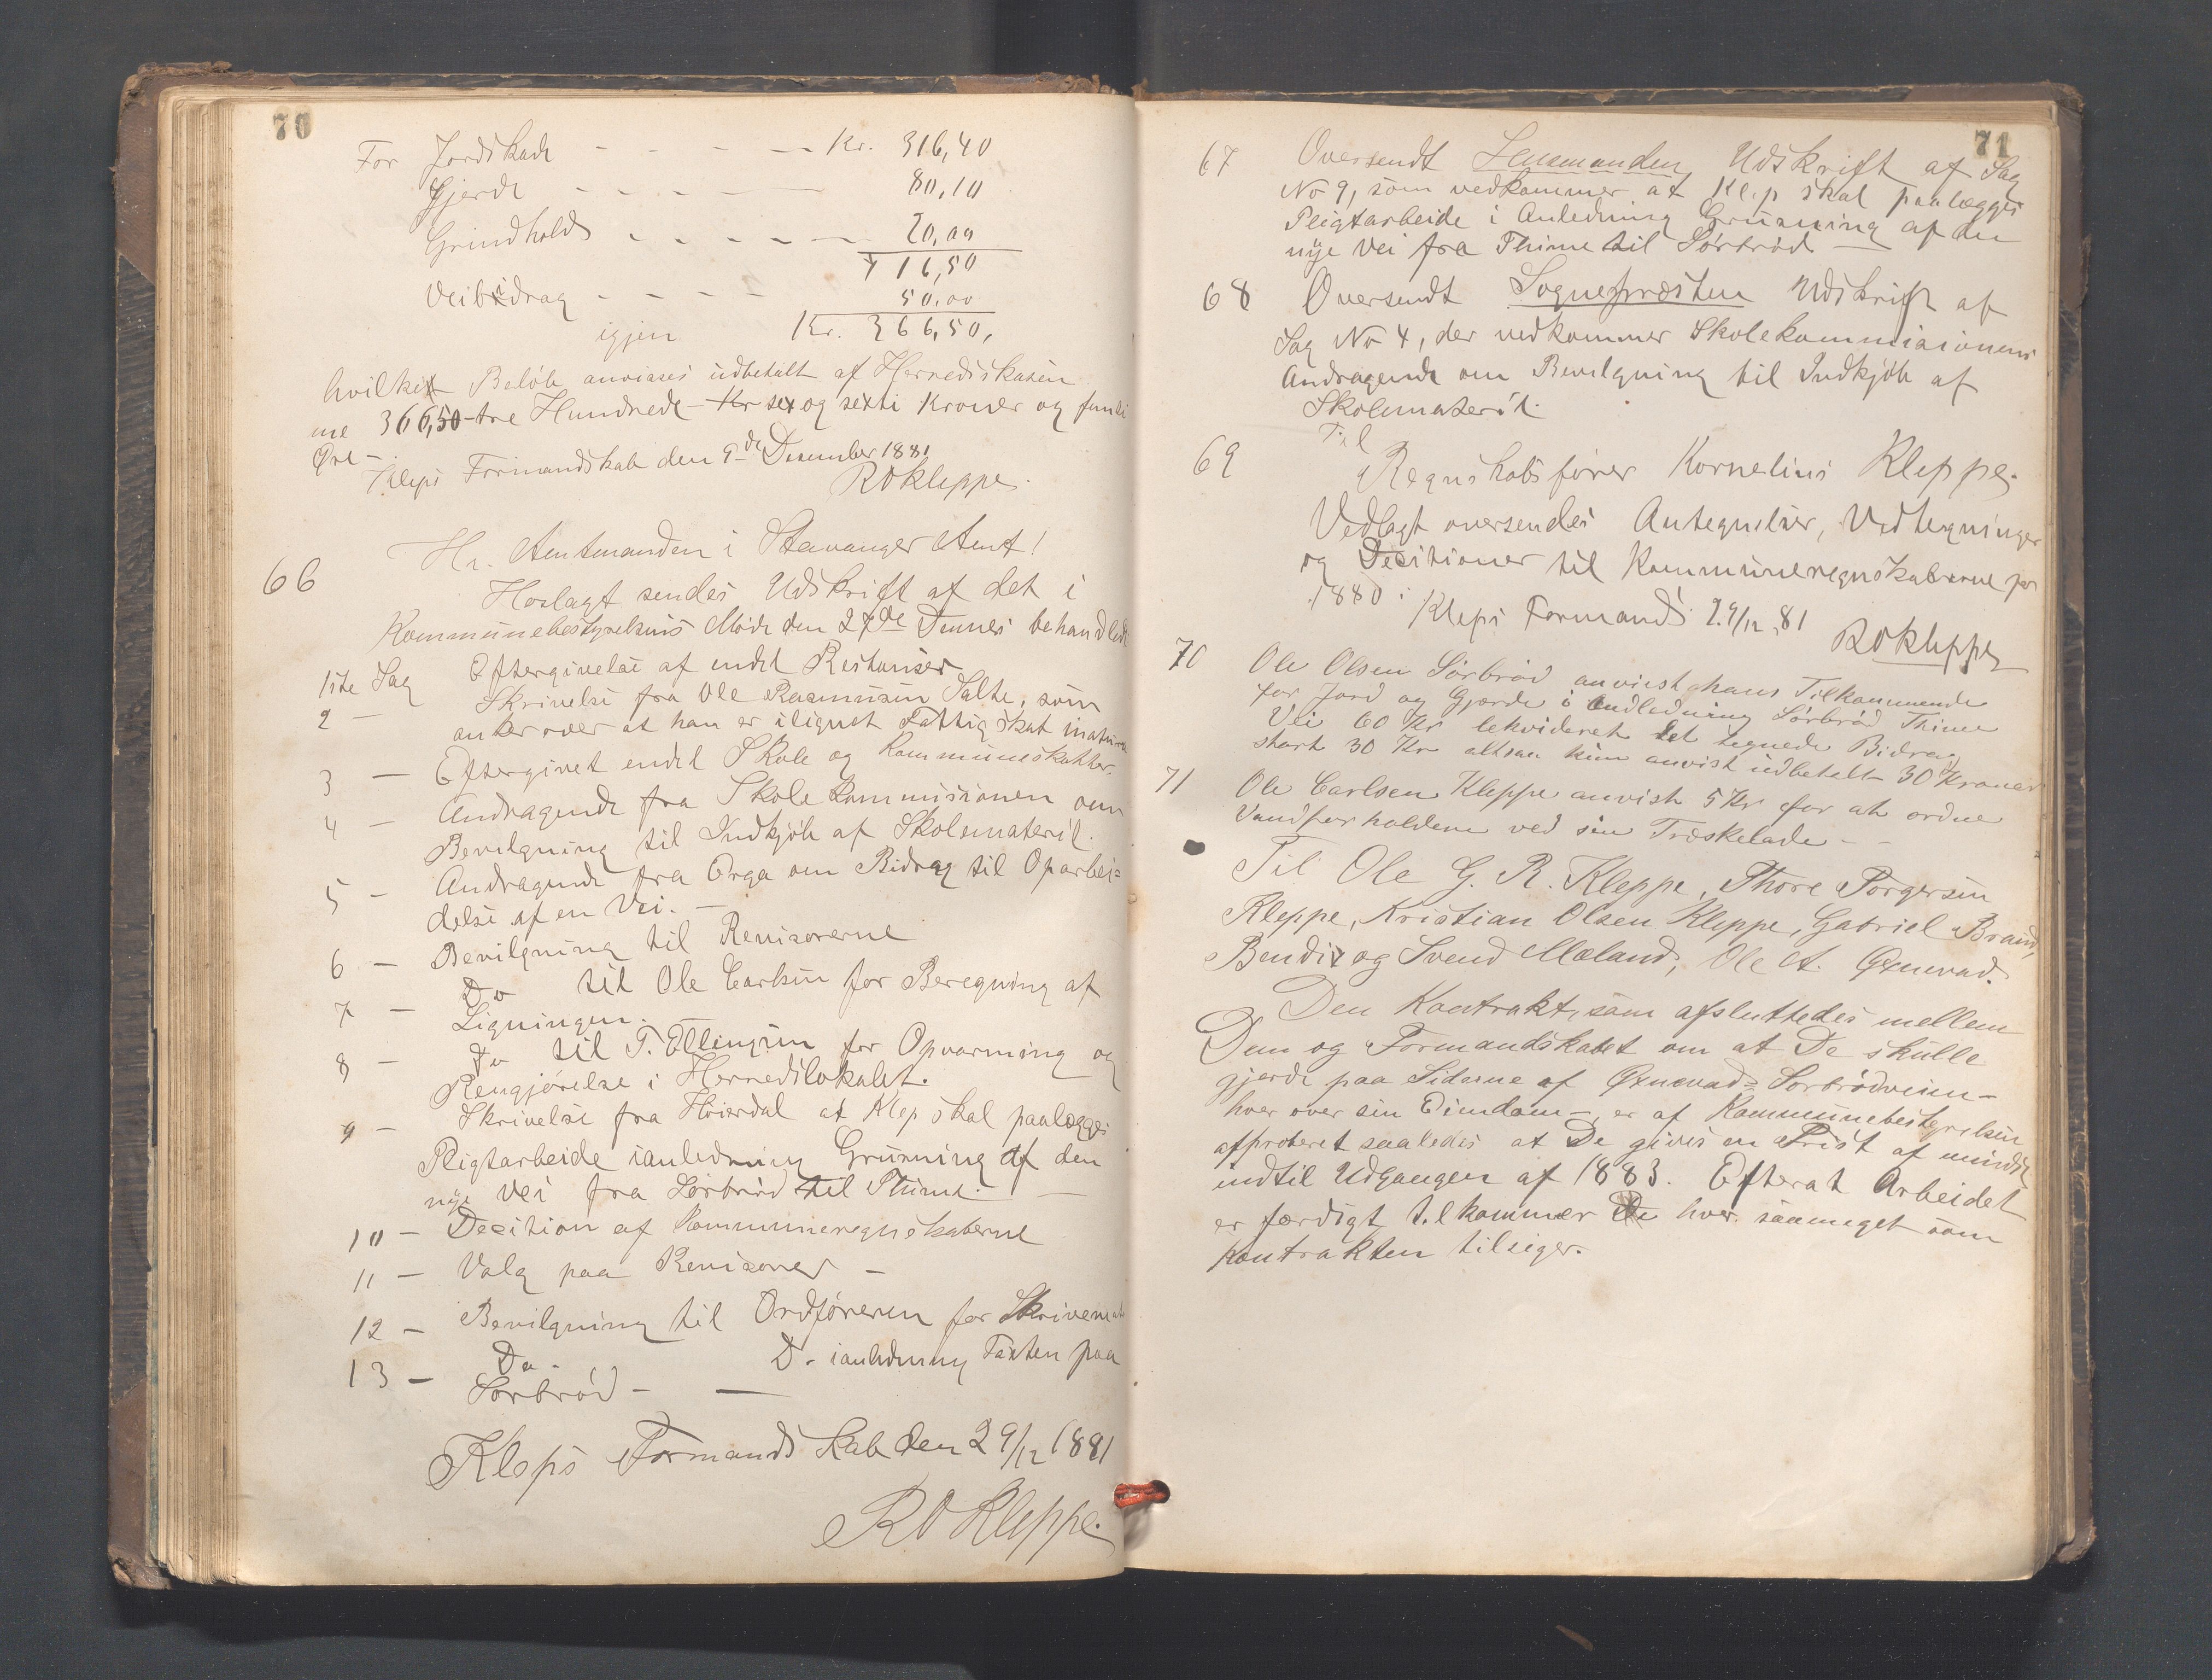 70
For Jordskade - - - - Kr. 316,40
Gjerde - - - - 80,10
Grindhold - - - - - 20,00
416,50
Veibidrag - - - - 50,00
igjen Kr. 366,50,
hvilket Beløb anvises udbetalt af Herredskasen
me 366,50 tre Hundrede Kr sex og sexti Kroner og femti
Øre -
Kleps Formandskab den 9de Desember 1881
ROKleppe.
66
Hr. Amtmanden i Stavanger Amt!
Hoslagt sendes Udskrift af det i
Kommunebestyrelsens Møde den 27de Dennes behandlede
1ste Sag Eftergivelse af endel Restanser
2 - Skrivelse fra Ole Rasmusen Salte, som
anker over at han er ilignet Fattigskat inatura
3 - Eftergivet endel Skole og Kommuneskatter.
4 - Andragende fra Skolekommisionen om
Bevilgning til Indkjøb af Skolemateriel.
5 - Andragende fra Orga om Bidrag til Oparbei=
delse af en Vei. -
6 - Bevilgning til Revisorerne
7 - Do til Ole Carlsen for Beregning af
Ligningen. -
8 - Do til T. Ellingsen for Opvarming og
Rengjørelse i Herredslokalet.
9 - Skrivelse fra Høierdal at Klep skal paalægges
Pligtarbeide ianledning Grusning af den
nye Vei fra Sørbrød til Thime. -
10 - Decition af Kommuneregnskaberne
11 - Valg paa Revisorer -
12 - Bevilgning til Ordføreren for Skrivemat
13 - Do - Do ianledning Taxten paa
Sørbrød - -
Kleps Formandskab den 29/12 1881
RO Kleppe.
71
67 Oversendt Lensmanden Udskrift af Sag
No 9, som vedkommer at Klep skal paalægges
Pligtarbeide i Anledning Grusning af den
nye Vei fra Thime til Sørbrød -
68 Oversendt Sognepræsten Udskrift af
Sag No 4, der vedkommer Skolekommisionens
Andragende om Bevilgning til Indkjøb af
Skolemateriel.
Til
69 Regnskabsfører Kornelius Kleppe.
Vedlagt oversendes Antegnelser, Vedtegninger
og Decitioner til Kommuneregnskaberne for
1880.
Kleps Formands. 29/12 81
ROKleppe
70 Ole Olsen Sørbrød anvist hans Tilkommende
for Jord og Gjærde i Andledning Sørbrød Thime
Vei 60 Kr lekvideret det tegnede Bidrag
stort 30 Kr altsaa kun anvist udbetalt 30 Kroner
71 Ole Carlsen Kleppe anvist 5 Kr for at ordne
Vandforholdene ved sin Træskelade - -
Til Ole G. R. Kleppe, Thore Torgersen
Kleppe, Kristian Olsen Kleppe, Gabriel Braud,
Bendix og Svend Mæland, Ole A. Øxnevad.
Den Kontrakt, som afsluttedes mellem
Dem og Formandskabet om at De skulle
gjerde paa Siderne af Øxnevad=Sørbrødveien -
hver over sin Eiendom -, er af Kommunebestyrelsen
afproberet saaledes at De gives en Frist af
indtil Udgangen af 1883. Efterat Arbeidet
er færdigt tilkommer De hver saameget som
Kontrakten tilsiger.